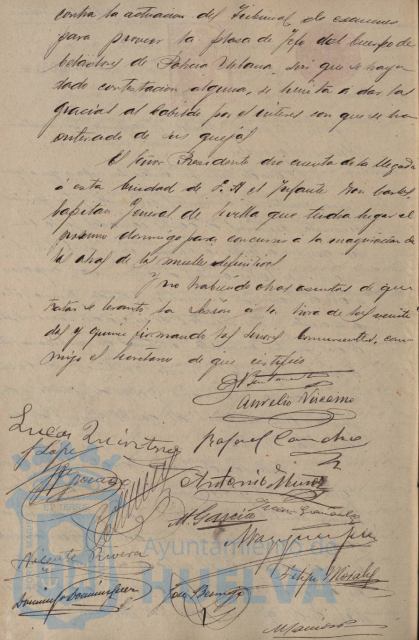 contra la actuacion del Tribunal de examenes
para proveer la plaza de Jefe del Cuerpo de
Celadores de Policia Urbana, sin que se haya
dado contestacion alguna, se limita a dar las
gracias al Cabildo por el interes con que se ha
enterado de sus quejas.
El Señor Presidente dio cuenta de la llegada
á esta Ciudad de S. A. el Infante Don Carlos,
Capitan General de Sevilla que tendra lugar el
proximo domingo para concurrir a la inauguracion de
las obras de los muelles definitivos
Y no habiendo otros asuntos de que
tratar se levantó la sesion á la hora de las veinte
y quince firmando los Señores concurrentes, con-
migo el Secretario de que certifico
Aurelio Vizcaino
Lucas Quintero
Rafael
Antonio Muñoz
M. Garcia
Juan Gonzalez
Rivera
Felipe Morales
Domingo Dominguez
Ayuntamiento de
HUELVA